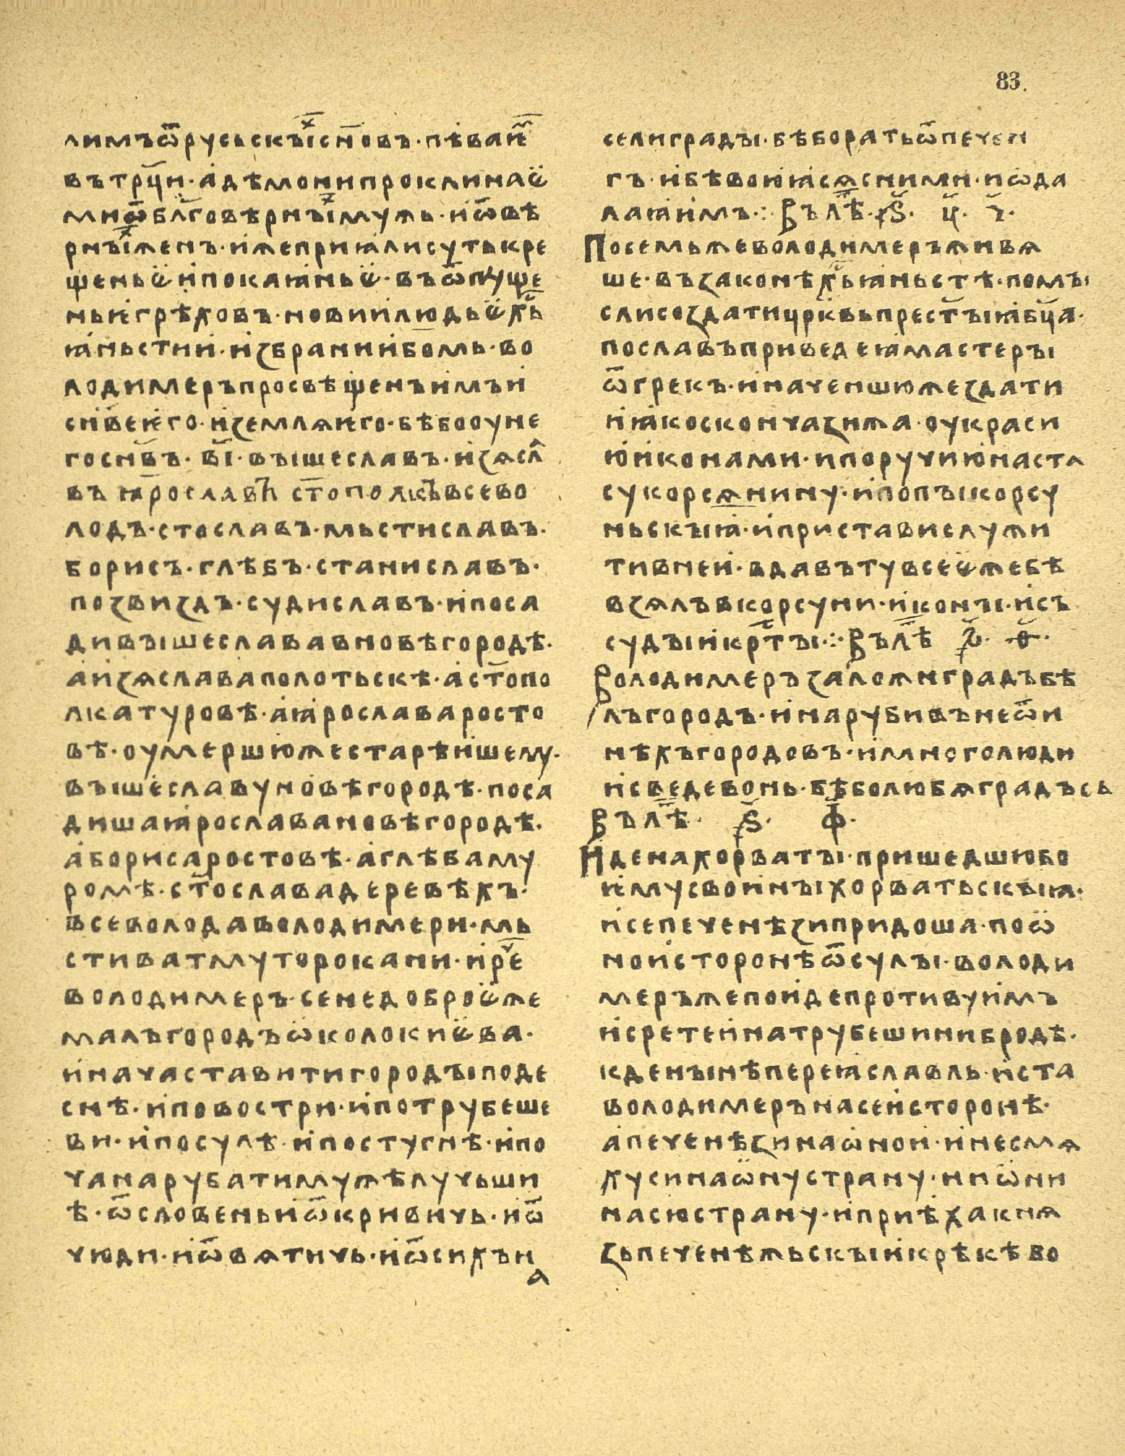 83
лимъѿрусьскꙑⷯ҇сн҃овъ · пѣваѥⷨ
вътрⷪ҇ци · адѣмонипроклинаѥ
миѿбл҃говѣрнꙑⷯмужь · иѿвѣ
рнꙑⷯженъ · ижеприꙗлисутькре
щеньѥипокаꙗньѥ · въѿпуще
ньѥгрѣховъ · новииилюдьѥхⷭ҇ь
ꙗньстии · избраниибо҃мь · во
лодимеръпросвѣщенъимъи
сн҃веѥго · иземлѧѥго · бѣбооуне
госн҃въ · в҃і · вꙑшеславъ · изѧсл
въ ꙗрославъ ст҃ополкъвсево
лодъ · стославъ · мьстиславъ ·
борисъ · глѣбъ · станиславъ ·
позвиздъ · судиславъ · ипоса
дивꙑшеслававновѣгородѣ ·
аизѧславаполотьскѣ · аст҃опо
лкатуровѣ · аꙗрославаросто
вѣ · оумершюжестарѣишему ·
вꙑшеславуновѣгородѣ · поса
дишаꙗрославановѣгородѣ ·
аборисаростовѣ · аглѣбаму
ромѣ · ст҃ославадеревѣхъ ·
всеволодаволодимери · мь
стиватмуторокани · ирⷱ҇е
володимеръ · сенедоброѥже
малъгородъѡколокиѥва ·
иначаставитигородꙑподе
снѣ · иповостри · ипотрубеше
ви · ипосулѣ · ипостугнѣ · ипо
чанарубатимужѣлучьши
ѣ · ѿсловеньиѿкривичь · иѿ
чюди · иѿвѧтичь · иѿсихъи
ѧ
селиградꙑ · бѣборатьѿпечен
гъ · ибѣвоюꙗсѧсними · иѡда
лаꙗимъ · :· Вълѣⷮ · ҂ѕ҃ · ц҃ · ч҃ ·
Посемьжеволодимеръживѧ
ше · възаконѣхⷭ҇ьꙗньстѣ · помꙑ
слисоздатицр҃квьпрест҃ꙑꙗбц҃а ·
пославъприведеꙗмастерꙑ
ѿгрекъ · иначеншюжездати
иꙗкоскончазижа · оукраси
юиконами · ипоручиюнаста
сукорсѧнину · ипопꙑкорсу
ньскꙑꙗ · иприставислужи
тивнеи · вдавътувсеѥжебѣ
взѧлъвкорсуни · иконꙑ · исъ
судꙑикрⷭ҇тꙑ · :· Вълѣⷮ
Володимеръзаложиградъбѣ
лъгородъ · инарубивънеѿи
нѣхъгородовъ · имноголюди
исведевонь · бѣболюбѧградъсь
Вълѣⷮ · ҂ѕ҃ · ф҃ ·
Иденахорватꙑ · пришедшюбо
ѥмусвоинꙑхорватьскꙑꙗ ·
исепеченѣзипридоша · поѡ
ноисторонѣѿсулꙑ · володи
меръжепоидепротивуимъ
исретеинатрубешинибродѣ ·
кденꙑнѣпереꙗславль · иста
володимеръна сеисторонѣ ·
апеченѣзинаѡнои · инесмѧ
хусинаѡнустрану · ниѡни
насюстрану · иприѣхакнѧ
зьпеченѣжьскꙑикрѣкѣво